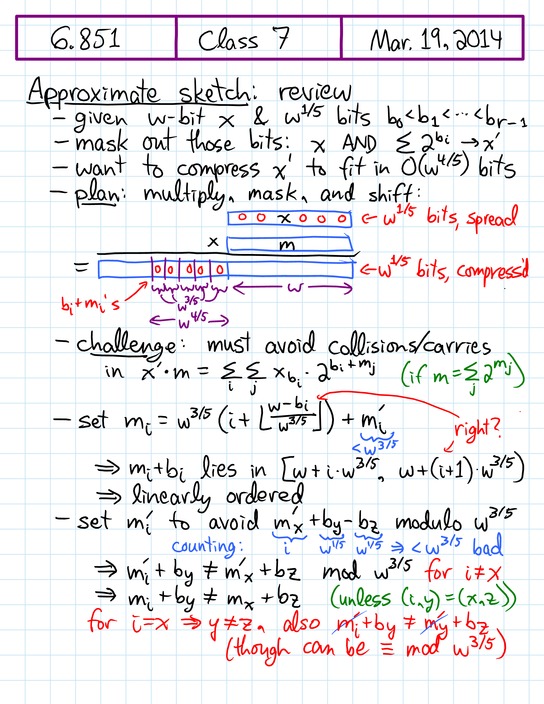 6.851 Class 7 Mar. 19, 2014
Approximate sketch: review
– given w-bit x & w^{1/5} bits b₀<b₁<⋯<b_{r-1}
– mask out those bits: x AND ∑2^{b_i} → x'
– want to compress x' to fit in O(w^{4/5}) bits
– plan: multiply, mask, and shift:
o o x o o o ← w^{1/5} bits, spread
x m
= o o o o o ← w^{1/5} bits, compress'd
b_i+m_i's w^{3/5} w
w^{4/5}
– challenge: must avoid collisions/carries
in x'·m = ∑_i ∑_j x_{b_i}·2^{b_i+m_j} (if m=∑_j 2^{m_j})
– set m_i = w^{3/5}(i+⌊(w-b_i)/w^{3/5}⌋) + m_i'
<w^{3/5} right?
⇒ m_i+b_i lies in [w+i·w^{3/5}, w+(i+1)·w^{3/5})
⇒ linearly ordered
– set m_i' to avoid m_x'+b_y-b_z modulo w^{3/5}
counting: i w^{1/5} w^{1/5} ⇒ <w^{3/5} bad
⇒ m_i'+b_y ≠ m_x'+b_z mod w^{3/5} for i≠x
⇒ m_i+b_y ≠ m_x+b_z (unless (i,y)=(x,z))
for i=x ⇒ y≠z, also m_i'+b_y ≠ m_y'+b_z
(though can be ≡ mod w^{3/5})